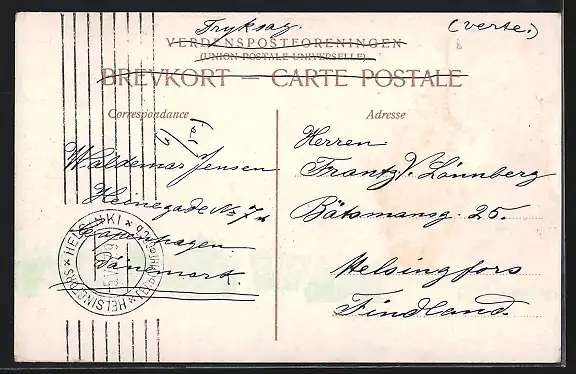 Tryksag.
(verte.)
VERDENSPOSTFORENINGEN
(UNION POSTALE UNIVERSELLE)
BREVKORT — CARTE POSTALE
Correspondance
Adresse
Waldemar Jensen
Heinegade No 7
Copenhagen
Danemark.
Herren
Frantz V. Lönnberg
Båtsmansg. 25.
Helsingfors
Findland.
HELSINKI
HELSINGFORS